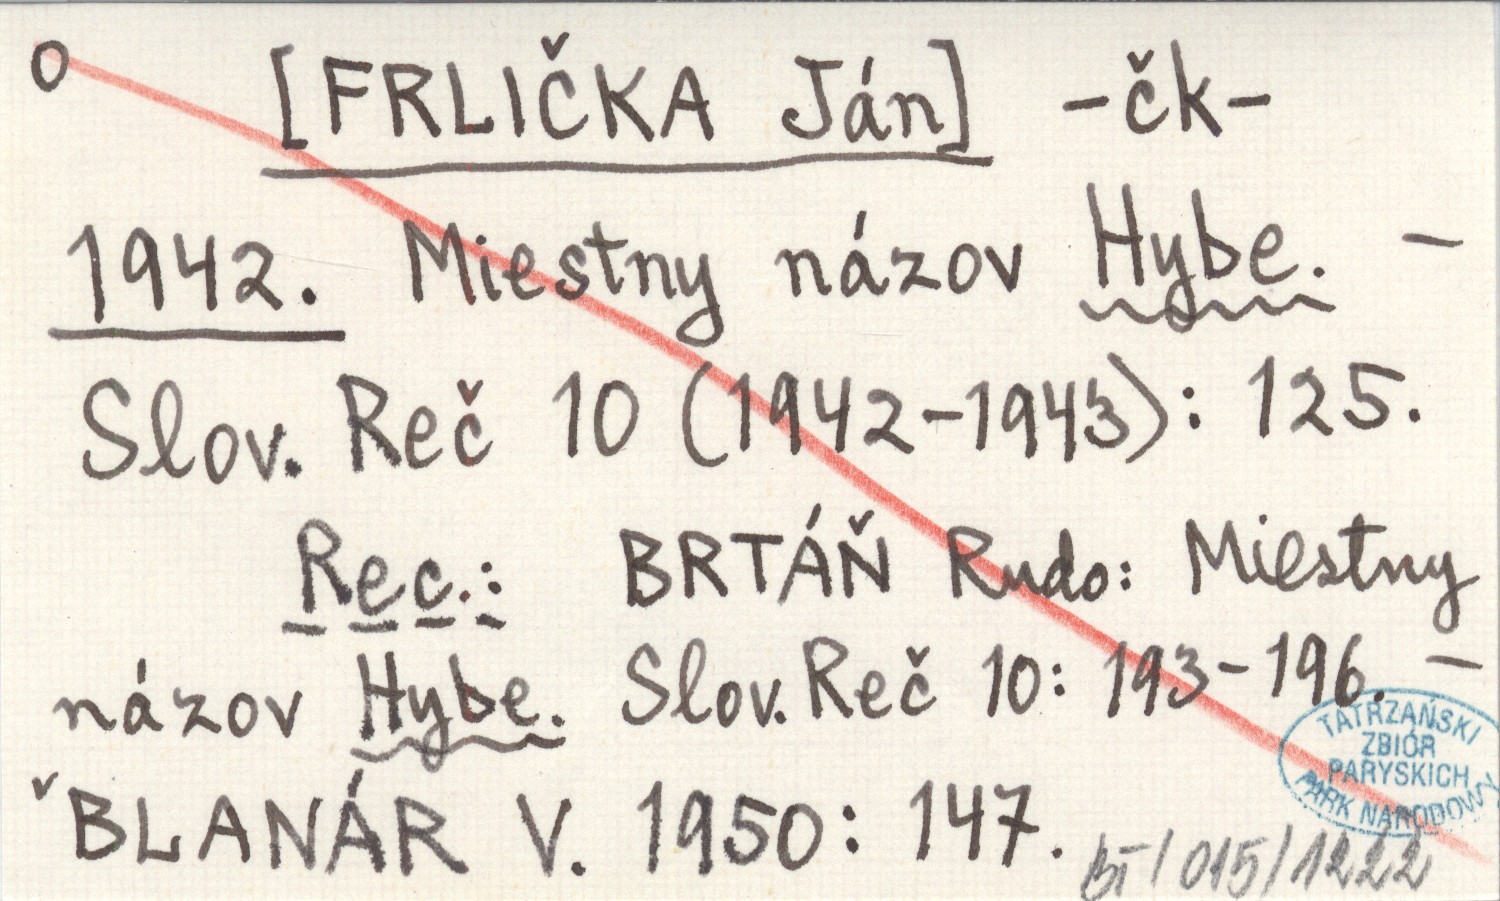 o [FRLIČKA Ján] -čk-
1942. Miestny názov Hybe. –
Slov. Reč 10 (1942-1943): 125.
Rec.: BRTÁŇ Rudo: Miestny
názov Hybe. Slov. Reč 10: 193-196. –
ˇBLANÁR V. 1950: 147.
TATRZAŃSKI
ZBIÓR
PARYSKICH
PARK NARODOWY
BT/015/1222